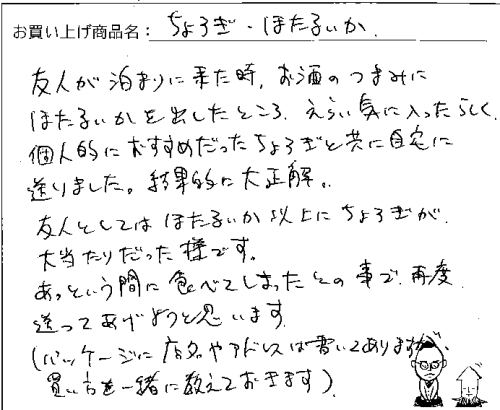 お買い上げ商品名：ちょろぎ・ほたるいか
友人が泊まりに来た時、お酒のつまみに
ほたるいかを出したところ、えらい気に入ったらしく、
個人的におすすめだったちょろぎと共に自宅に
送りました。結果的に大正解。
友人としてはほたるいか以上にちょろぎが、
大当たりだった様です。
あっという間に食べてしまったとの事で、再度
送ってあげようと思います
(パッケージに店名やアドレスは書いてありますが、
買い方を一緒に教えておきます)